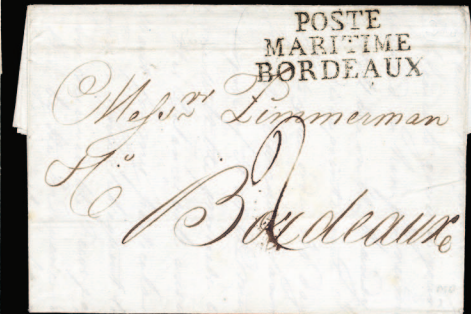 POSTE
MARITIME
BORDEAUX
Messrs Zimmerman
& Co
2
Bordeaux